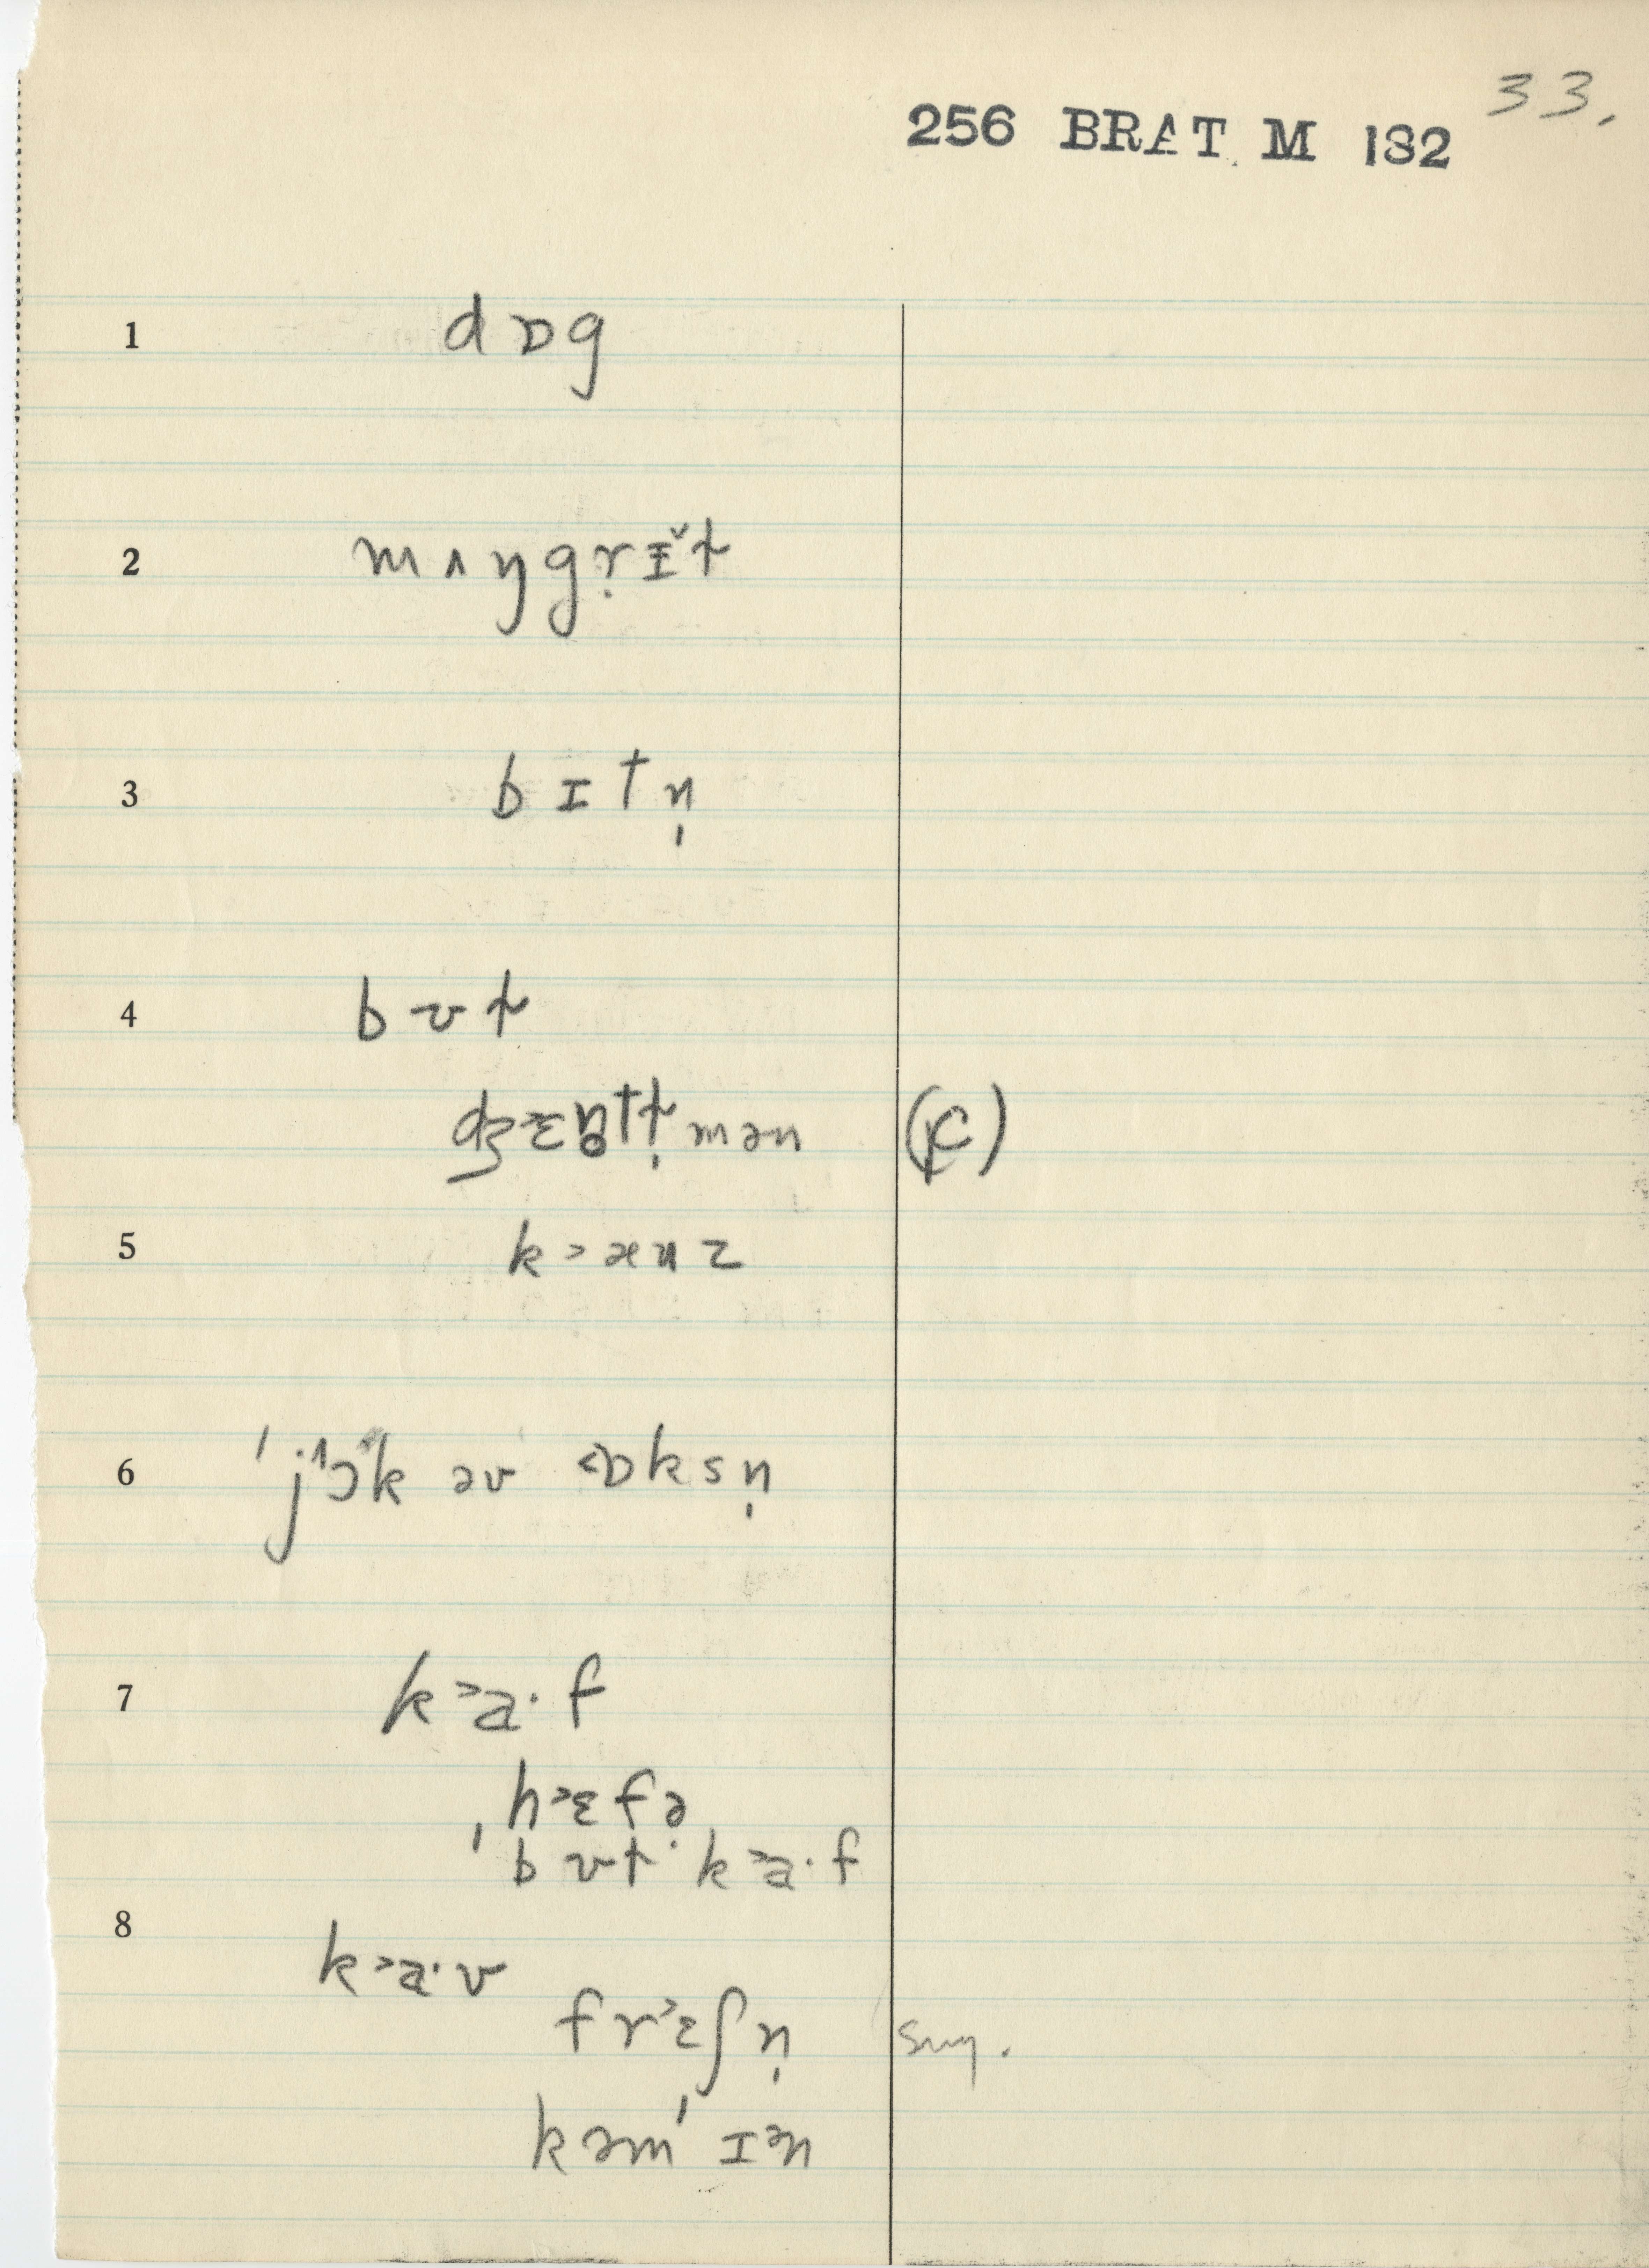 33.
256 BRAT M 132
1 dɒg
2 mʌŋgṛɪ̵̌t
3 bɪtn̩
4 bʊt
mən (K)
5 k˃ænz
6 ˈj˄ɔ˅k əv ˂ɒksn̩
7 k˃a·f
ˌh˃ɛfə
ˈbʊt k˃a·f
8 k˃a·v
fr˃ɛʃn̩ sug.
kəmˈɪən